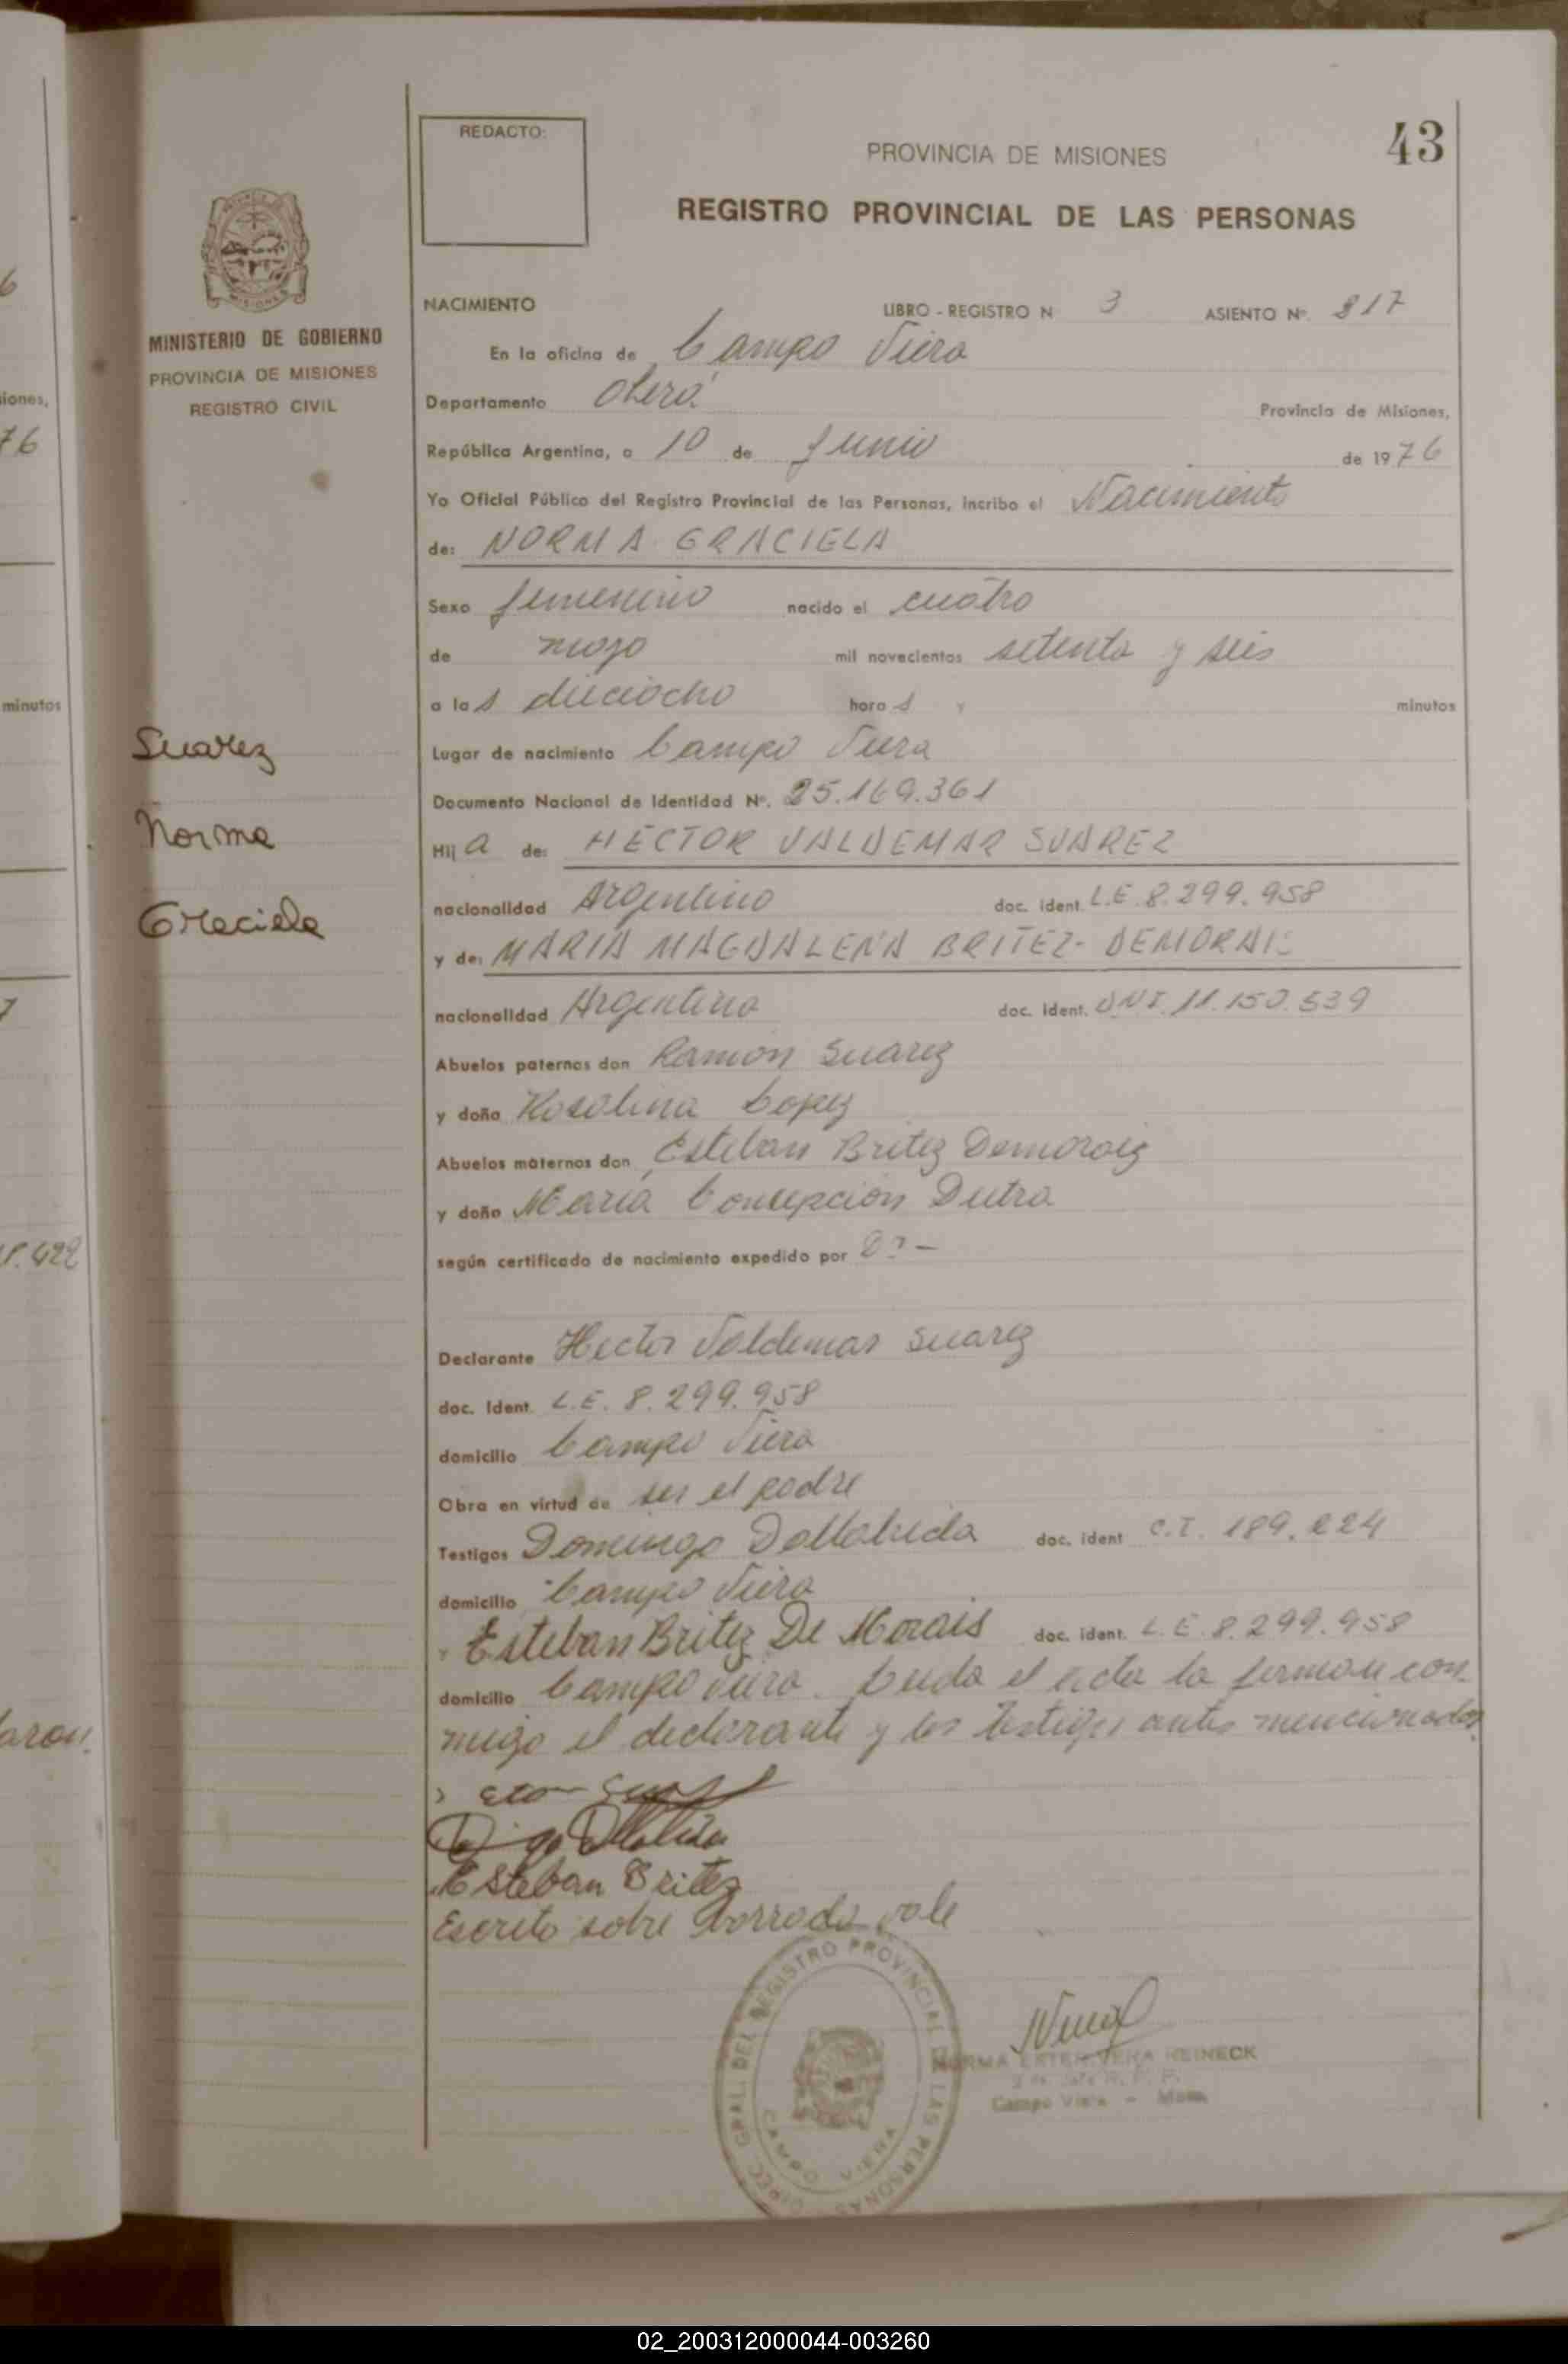 43
REDACTO:
PROVINCIA DE MISIONES
REGISTRO PROVINCIAL DE LAS PERSONAS
MINISTERIO DE GOBIERNO
PROVINCIA DE MISIONES
REGISTRO CIVIL
NACIMIENTO LIBRO - REGISTRO N 3 ASIENTO Nº. 817
En la oficina de Campo Viera
Departamento Oberá Provincia de Misiones,
República Argentina, a 10 de Junio de 1976
Yo Oficial Público del Registro Provincial de las Personas, incribo el Nacimiento
de: NORMA GRACIELA
Sexo femenino nacido el cuatro
de mayo mil novecientos setenta y seis
a las dieciocho horas y minutos
Lugar de nacimiento Campo Viera
Documento Nacional de Identidad Nº. 25.169.361
Hija de: HECTOR VALDEMAR SUAREZ
nacionalidad Argentino doc. ident. L.E. 8.299.958
y de: MARIA MAGDALENA BRITEZ- DEMORAIS
nacionalidad Argentina doc. ident. DNI. 11.150.539
Abuelos paternos don Ramon Suarez
y doña Rosolina Lopez
Abuelos maternos don Esteban Britez Demoraiz
y doña Maria Concepcion Dutra
según certificado de nacimiento expedido por
Declarante Hector Valdemar Suarez
doc. Ident. L.E. 8.299.958
domicilio Campo Viera
Obra en virtud de ser el padre
Testigos Domingo Dallabrida doc. ident C.I. 189.224
domicilio Campo Viera
Esteban Britez De Morais doc. ident. L.E. 8.299.958
domicilio Campo Viera. Leida el acta la firman con
migo el declarante y los testigos antes mencionados
Esteban Britez
Escrito sobre borrado vale
Suarez
Norma
Graciela
DIREC. GRAL. DEL REGISTRO PROVINCIAL DE LAS PERSONAS
CAMPO VIERA
NORMA ESTER VERA REINECK
Campo Viera - Mnes.
6
siones,
76
minutos
7
8.422
laron.
02_200312000044-003260